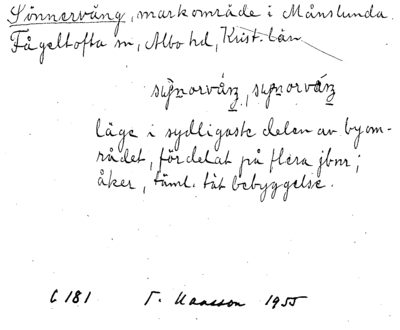 Sönnervång, markområde i Månslunda.
Fågeltofta sn, Albo hd, Krist. län
läge i sydligaste delen av byom-
rådet, fördelat på flera jbnr;
åker, täml. tät bebyggelse.
C 181 1955